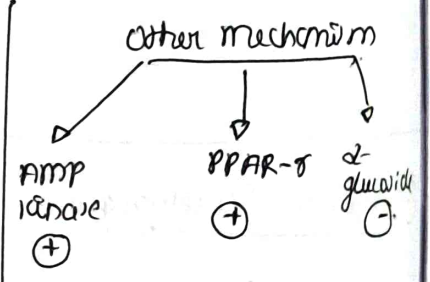 Other mechanism
AMP
kinase
+
PPAR-γ
+
α-
glucoside
-